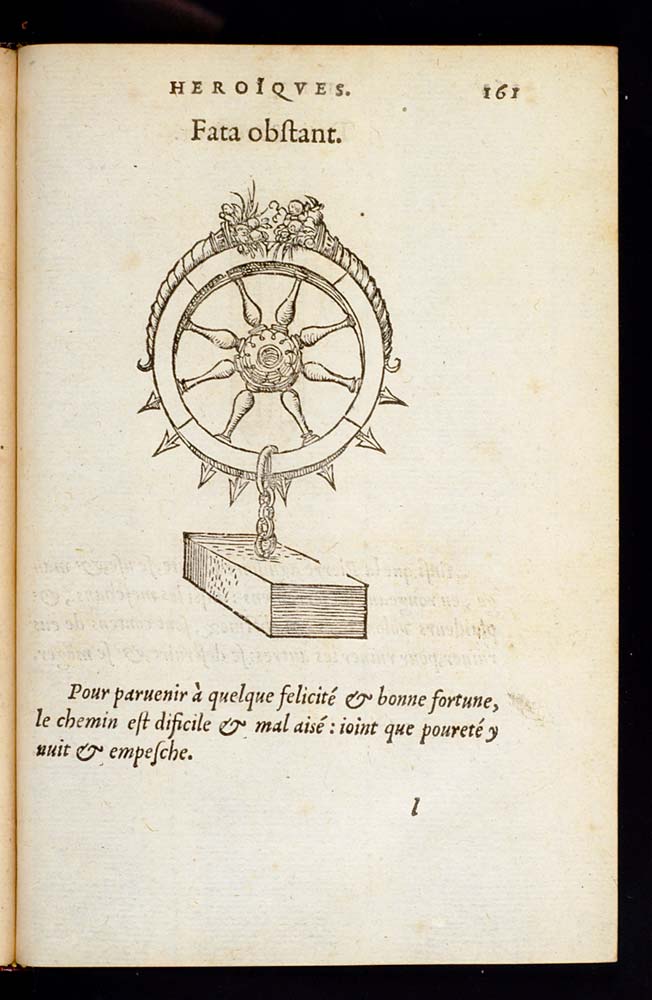 HEROÏQVES. 161
Fata obſtant.
Pour paruenir à quelque felicité & bonne fortune,
le chemin eſt dificile & mal aiſé : ioint que poureté y
nuit & empeſche.
l